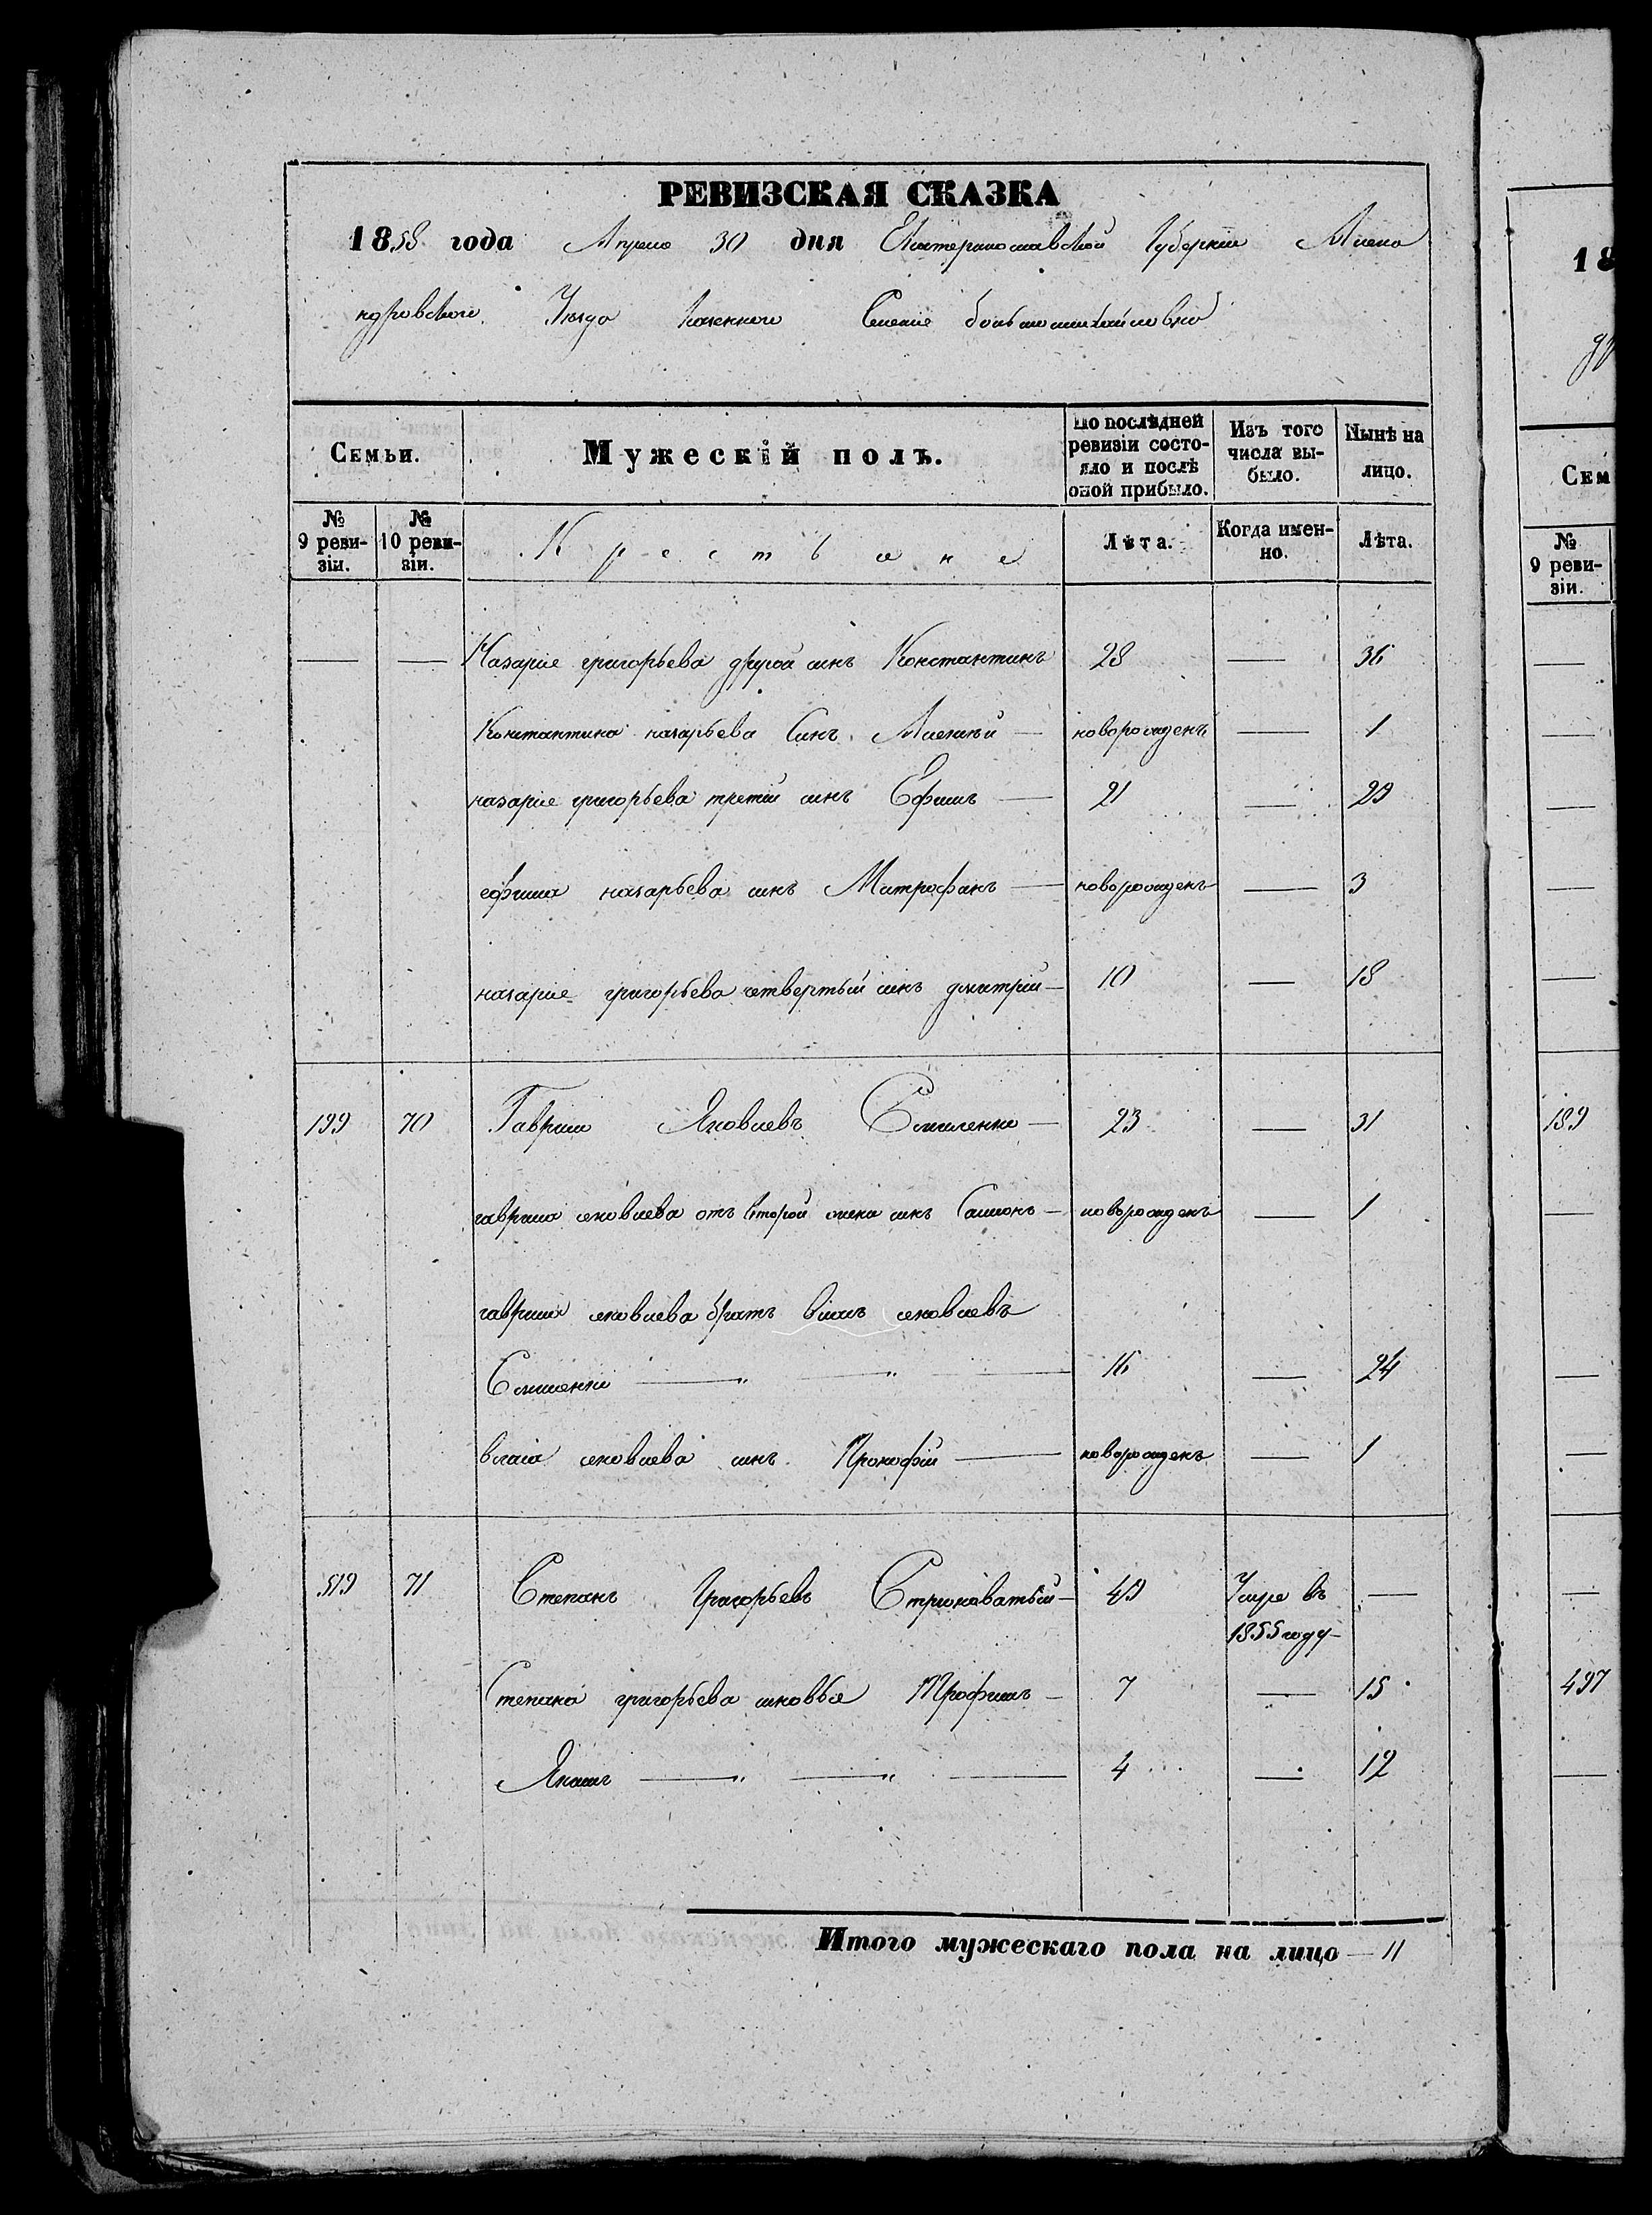 РЕВИЗСКАЯ СКАЗКА
1858 года Апреля 30 дня Екатеринославской Губернии Алекса
ндровского Уезда казенного Селение большомихайловка
Семьи.
Мужескій полъ.
По послѣдней ревизіи состояло и послѣ оной прибыло.
Изъ того числа выбыло.
Нынѣ на лицо.
№ 9 ревизіи.
№ 10 ревизіи.
Крестьяне
Лѣта.
Когда именно.
Лѣта.
— — Назарие григорьева другой синъ Константинъ 28 — 36
Константина назарьева Синъ Алексѣй — новорожденъ — 1
назарие григорьева третій синъ Ефимъ — 21 — 29
ефима назарьева синъ Митрофанъ — новорожденъ — 3
назарие григорьева четвертый синъ дмитрий — 10 — 18
199 70 Гаврило Яковлевъ Смиленко — 23 — 31
гаврила яковлева отъ второй жени синъ Самсонъ — новорожденъ — 1
гаврила яковлева братъ власъ яковлевъ
Смиленко — " — " — 16 — 24
власа яковлева синъ Прокофій — новорожденъ — 1
519 71 Степанъ Григорьевъ Стриковатый — 49 Умре въ —
1855 году
Степана григорьева синовья Трофимъ — 7 — 15
Якимъ — " — " — 4 — 12
Итого мужескаго пола на лицо — 11
18
Сем
№ 9 ревизіи.
189
497